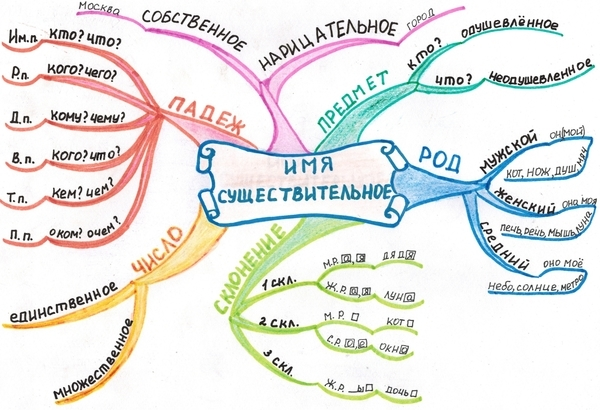 ИМЯ
СУЩЕСТВИТЕЛЬНОЕ
СОБСТВЕННОЕ
Москва
НАРИЦАТЕЛЬНОЕ
город
ПРЕДМЕТ
кто?
одушевлённое
что?
неодушевленное
РОД
МУЖСКОЙ
он(мой)
кот, нож, душ, мяч
ЖЕНСКИЙ
она моя
печь, речь, мышь, луна
СРЕДНИЙ
оно моё
небо, солнце, метро
СКЛОНЕНИЕ
1 скл.
М.Р. а, я
дядя
Ж.Р. а, я
луна
2 скл.
М.Р.
кот
С.Р. о, е
окно
3 скл.
Ж.Р. _ь
дочь
ЧИСЛО
единственное
множественное
ПАДЕЖ
Им.п. кто? что?
Р.п. кого? чего?
Д.п. кому? чему?
В.п. кого? что?
Т.п. кем? чем?
П.п. о ком? о чем?